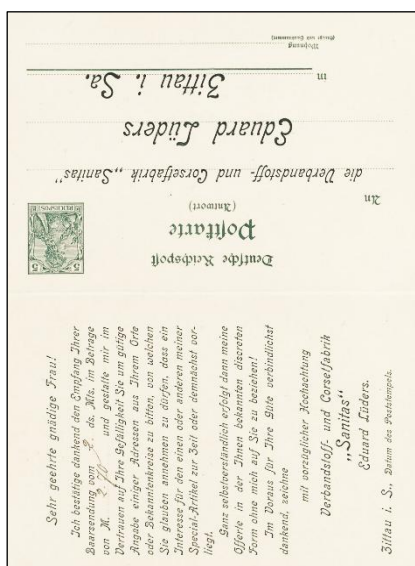 Deutsche Reichspost
Postkarte
(Antwort)
An
die Verbandstoff- und Corsetfabrik "Sanitas"
Eduard Lüders
in
Zittau i. Sa.
Wohnung
(Straße und Hausnummer)
5 5
REICHSPOST
Sehr geehrte gnädige Frau!
Ich bestätige dankend den Empfang Ihrer
Baarsendung vom 2. ds. Mts. im Betrage
von M. und gestatte mir im
Vertrauen auf Ihre Gefälligkeit Sie um gütige
Angabe einiger Adressen aus Ihrem Orte
oder Bekanntenkreise zu bitten, von welchen
Sie glauben annehmen zu dürfen, dass ein
Interesse für den einen oder anderen meiner
Special-Artikel zur Zeit oder demnächst vor-
liegt.
Ganz selbstverständlich erfolgt dann meine
Offerte in der Ihnen bekannten discreten
Form ohne mich auf Sie zu beziehen!
Im Voraus für Ihre Güte verbindlichst
dankend, zeichne
mit vorzüglicher Hochachtung
Verbandstoff- und Corsetfabrik
„Sanitas"
Eduard Lüders.
Zittau i. S., Datum des Poststempels.